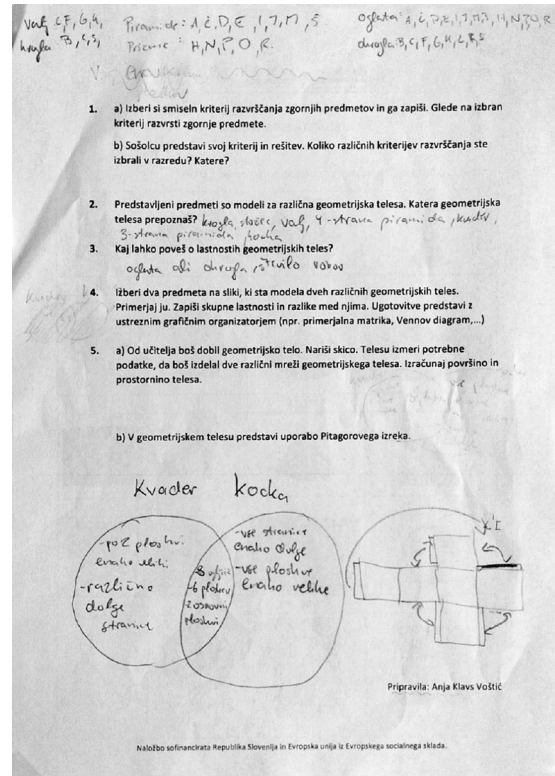 valj C, F, G, K,
krogla B,
Piramide: A, Č, D, E, I, J, M, Š
Prizme: H, N, P, O, R.
oglata: A, Č, D, E, I, J, M, H, N, P, O, R
okrogla B, C, F, G, K, L, S
1. a) Izberi si smiseln kriterij razvrščanja zgornjih predmetov in ga zapiši. Glede na izbran
kriterij razvrsti zgornje predmete.
b) Sošolcu predstavi svoj kriterij in rešitev. Koliko različnih kriterijev razvrščanja ste
izbrali v razredu? Katere?
2. Predstavljeni predmeti so modeli za različna geometrijska telesa. Katera geometrijska
telesa prepoznaš? krogla, stožec, valj, 4-strana piramida, kvader,
3-strana piramida, kocka
3. Kaj lahko poveš o lastnostih geometrijskih teles?
oglata ali okrogla, število robov
4. Izberi dva predmeta na sliki, ki sta modela dveh različnih geometrijskih teles.
Primerjaj ju. Zapiši skupne lastnosti in razlike med njima. Ugotovitve predstavi z
ustreznim grafičnim organizatorjem (npr. primerjalna matrika, Vennov diagram,...)
5. a) Od učitelja boš dobil geometrijsko telo. Nariši skico. Telesu izmeri potrebne
podatke, da boš izdelal dve različni mreži geometrijskega telesa. Izračunaj površino in
prostornino telesa.
b) V geometrijskem telesu predstavi uporabo Pitagorovega izreka.
Kvader kocka
-po 2 ploskvi
enako veliki
-različno
dolge
stranice
-8 oglišč
-6 ploskev
2 osnovni
ploskvi
-vse stranice
enako dolge
-vse ploskve
enako velike
Pripravila: Anja Klavs Voštić
Naložbo sofinancirata Republika Slovenija in Evropska unija iz Evropskega socialnega sklada.